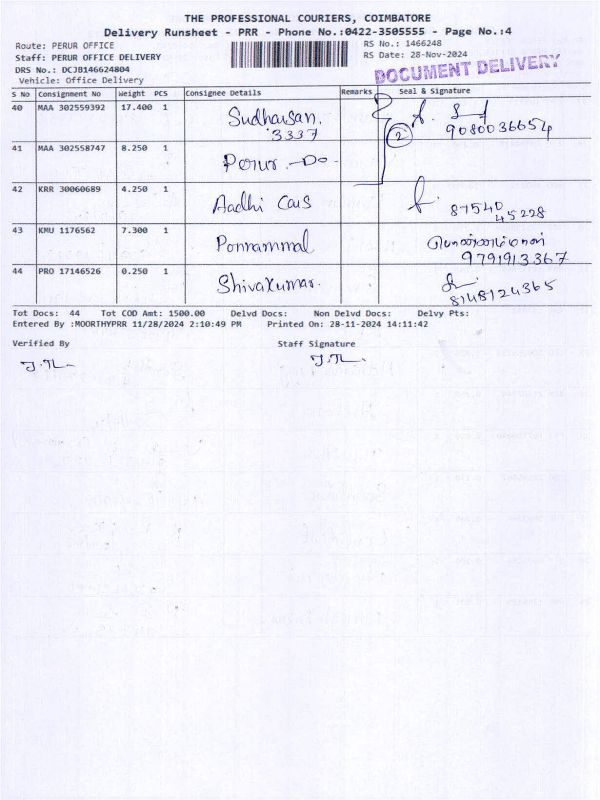 THE PROFESSIONAL COURIERS, COIMBATORE
Delivery Runsheet - PRR - Phone No.:0422-3505555 - Page No.:4
Route: PERUR OFFICE
RS No.: 1466248
Staff: PERUR OFFICE DELIVERY
RS Date: 28-Nov-2024
DRS No.: DCJB146624804
DOCUMENT DELIVERY
Vehicle: Office Delivery
S No Consignment No Weight PCS Consignee Details Remarks Seal & Signature
40 MAA 302559392 17.400 1 Sudharsan.
3337
2 9080036654
41 MAA 302558747 8.250 1 Perur -Do-
42 KRR 30060689 4.250 1 Aadhi Cars
87540
45228
43 KMU 1176562 7.300 1 Ponnammal பொன்னம்மாள்
9791913367
44 PRO 17146526 0.250 1 Shivakumar.
8148124365
Tot Docs: 44 Tot COD Amt: 1500.00 Delvd Docs: Non Delvd Docs: Delvy Pts:
Entered By :MOORTHYPRR 11/28/2024 2:10:49 PM Printed On: 28-11-2024 14:11:42
Verified By Staff Signature